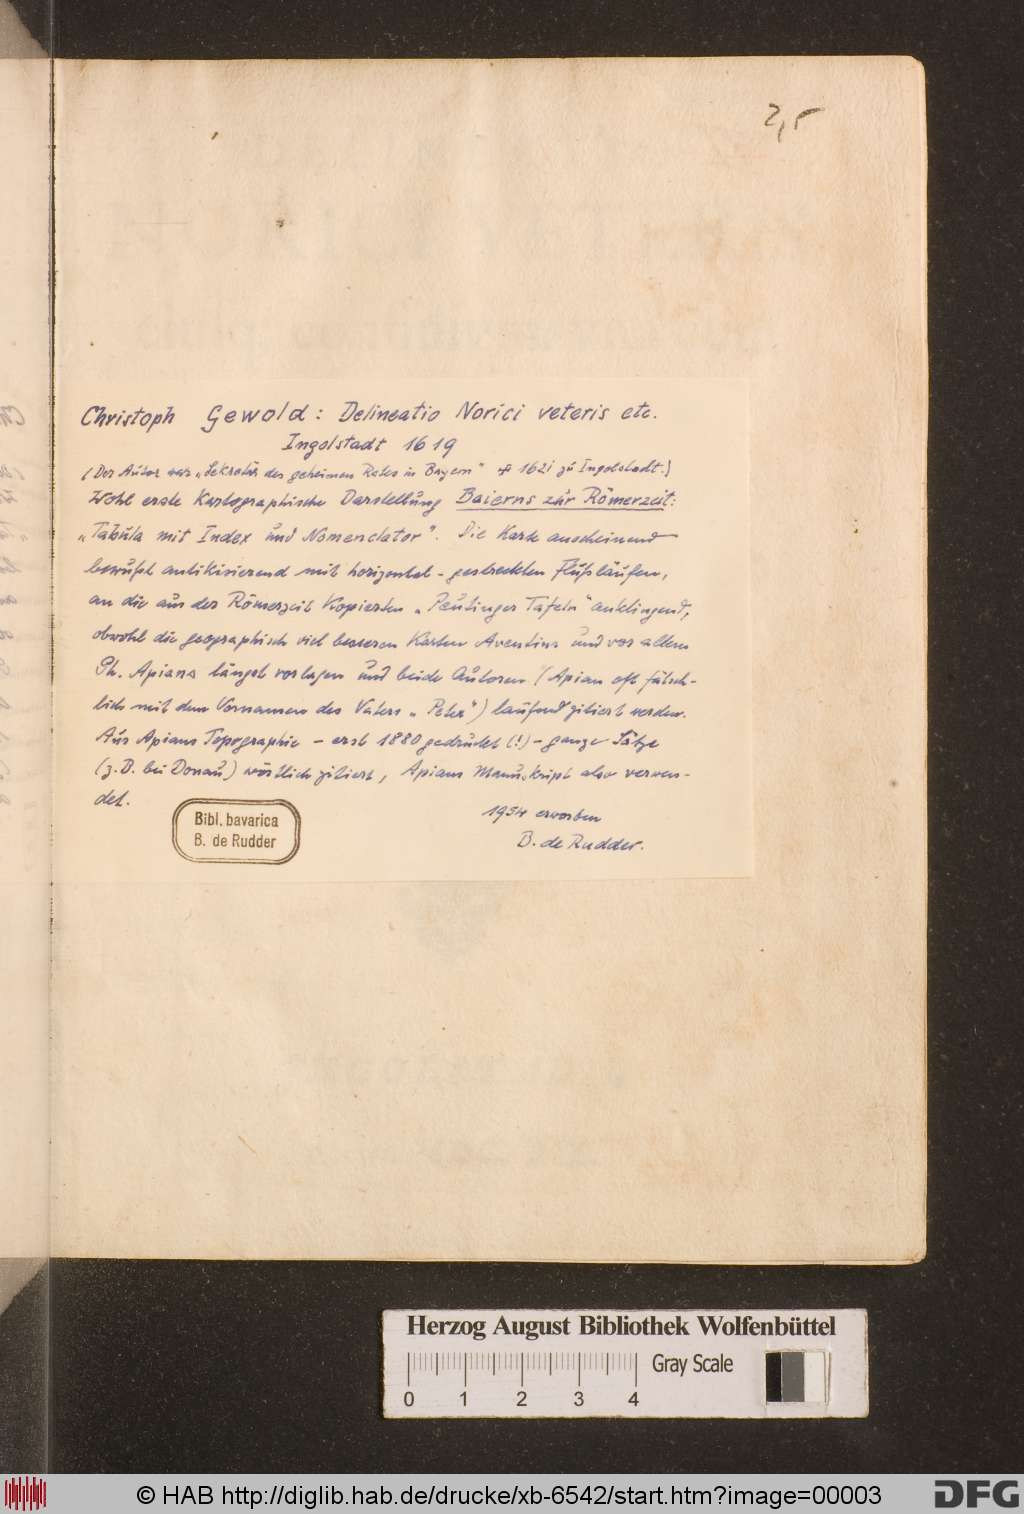 2,5
Christoph Gewold: Delineatio Norici veteris etc.
Ingolstadt 1619
(Der Autor war „Sekretär des geheimen Rates in Bayern" + 1621 zu Ingolstadt.)
Wohl erste Kartographische Darstellung Baierns zur Römerzeit:
„Tabula mit Index und Nomenclator". Die Karte anscheinend
bewußt antikisierend mit horizontal-gestreckten Flußläufen,
an die aus der Römerzeit Kopierten „Peutinger Tafeln" anklingend,
obwohl die geographisch viel besseren Karten Aventins und vor allem
Ph. Apians längst vorlagen und beide Autoren (Apian oft fälsch-
lich mit dem Vornamen des Vaters „Peter") laufend zitiert werden.
Aus Apians Topographie – erst 1880 gedruckt (!) – ganze Sätze
(z.B. bei Donau) wörtlich zitiert, Apians Manuskript also verwen-
det.
1954 erworben
B. de Rudder.
Bibl. bavarica
B. de Rudder
Herzog August Bibliothek Wolfenbüttel
0 1 2 3 4 Gray Scale
© HAB http://diglib.hab.de/drucke/xb-6542/start.htm?image=00003
DFG